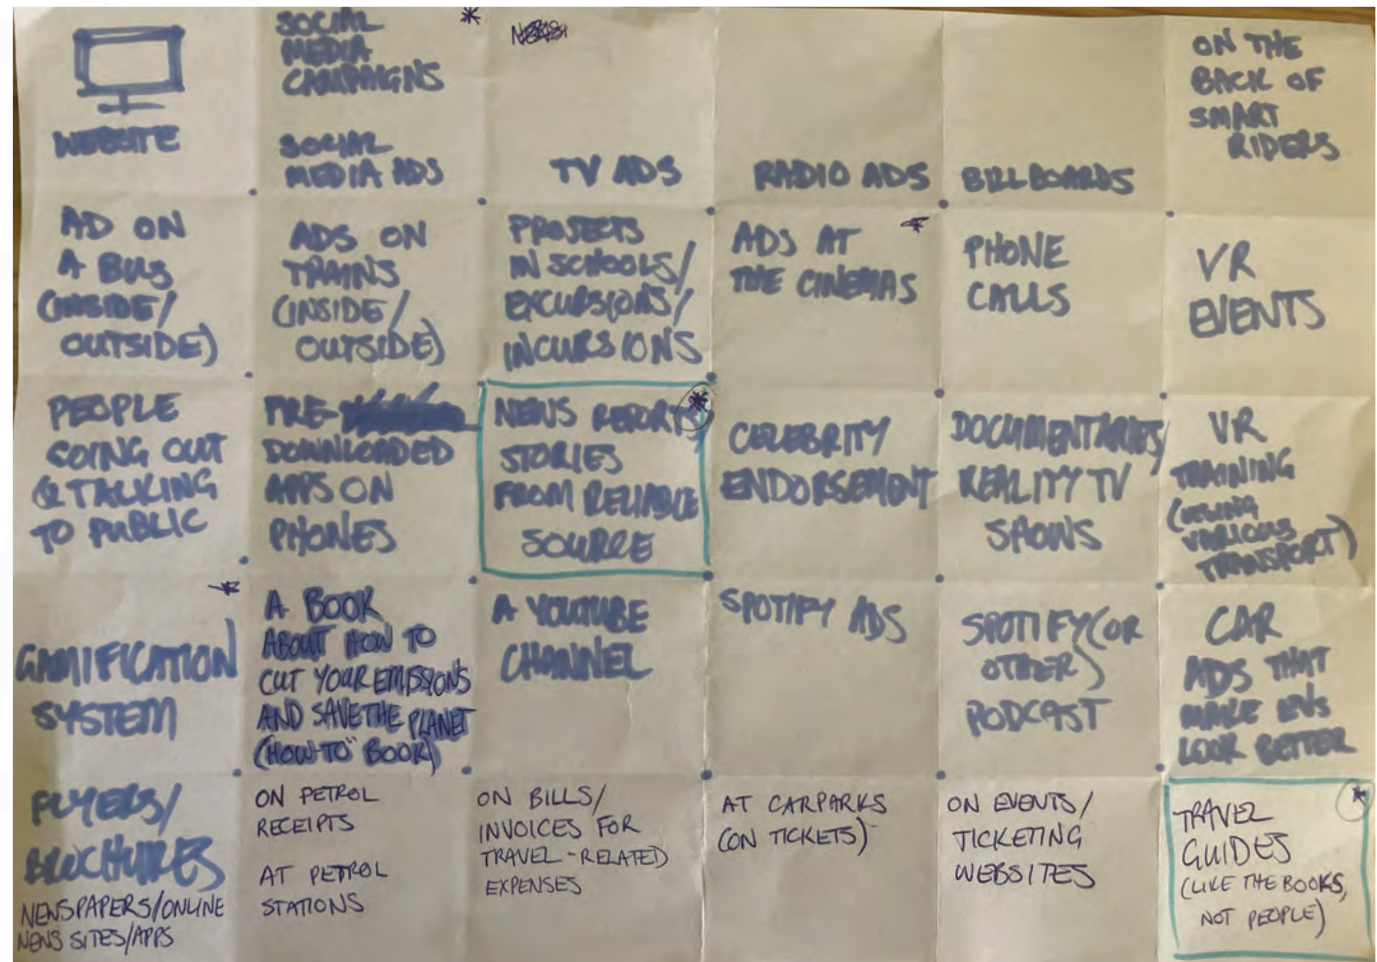 WEBSITE
SOCIAL
MEDIA
CAMPAIGNS
SOCIAL
MEDIA ADS
TV ADS
RADIO ADS
BILLBOARDS
ON THE
BACK OF
SMART
RIDERS
AD ON
A BUS
(INSIDE/
OUTSIDE)
ADS ON
TRAINS
(INSIDE/
OUTSIDE)
PROJECTS
IN SCHOOLS/
EXCURSIONS/
INCURSIONS
ADS AT
THE CINEMAS
PHONE
CALLS
VR
EVENTS
PEOPLE
GOING OUT
& TALKING
TO PUBLIC
PRE-
DOWNLOADED
APPS ON
PHONES
NEWS REPORTS
STORIES
FROM RELIABLE
SOURCE
CELEBRITY
ENDORSEMENT
DOCUMENTARIES/
REALITY TV
SHOWS
VR
TRAINING
(USING
VARIOUS
TRANSPORT)
GAMIFICATION
SYSTEM
A BOOK
ABOUT HOW TO
CUT YOUR EMISSIONS
AND SAVE THE PLANET
(HOW-TO" BOOK)
A YOUTUBE
CHANNEL
SPOTIFY ADS
SPOTIFY (OR
OTHER)
PODCAST
CAR
ADS THAT
MAKE EVS
LOOK BETTER
FLYERS/
BROCHURES
NEWSPAPERS/ONLINE
NEWS SITES/APPS
ON PETROL
RECEIPTS
AT PETROL
STATIONS
ON BILLS/
INVOICES FOR
TRAVEL-RELATED
EXPENSES
AT CARPARKS
(ON TICKETS)
ON EVENTS/
TICKETING
WEBSITES
TRAVEL
GUIDES
(LIKE THE BOOKS,
NOT PEOPLE)